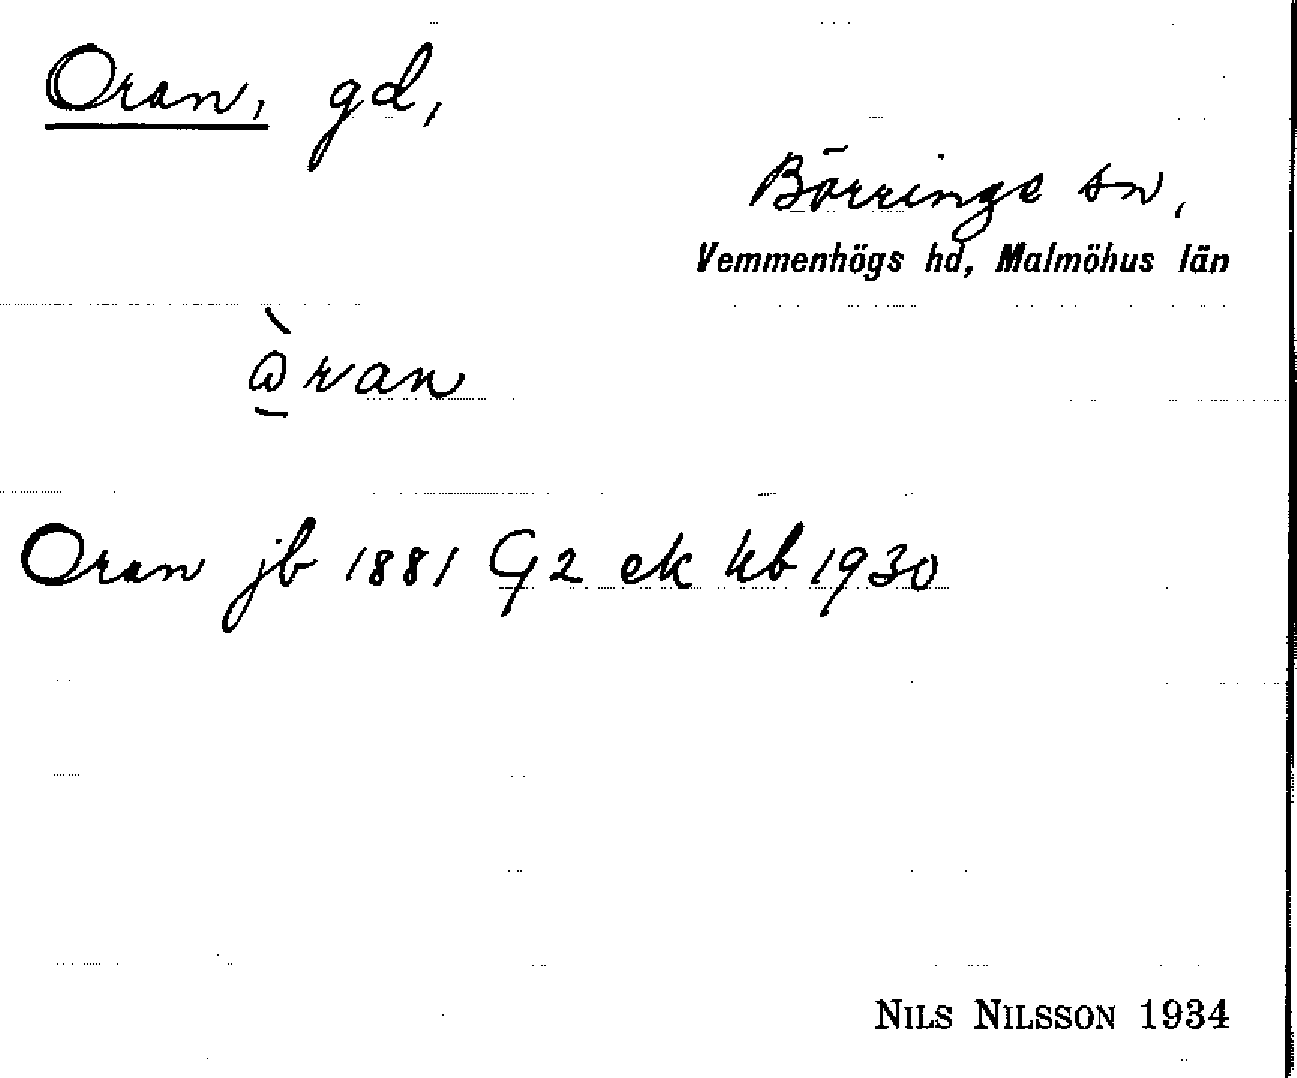 Oran, gd,
Börringe sn,
Vemmenhögs hd, Malmöhus län
ò̱ran
Oran jb 1881 G2 ek kb 1930
NILS NILSSON 1934